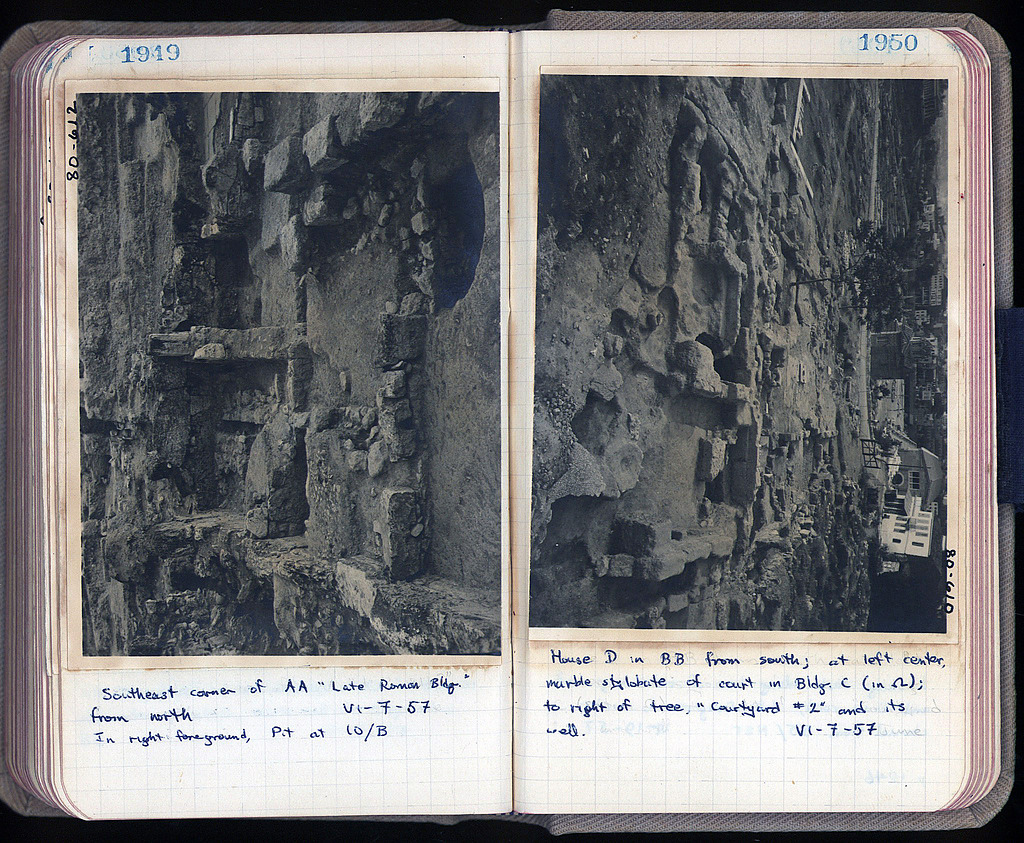 1949
80-612
Southeast corner of AA "Late Roman Bldg."
from north VI-7-57
In right foreground, Pit at 10/B
1950
80-610
House D in BB from south; at left center,
marble stylobate of court in Bldg. C (in Ω);
to right of tree, "Courtyard #2" and its
well. VI-7-57